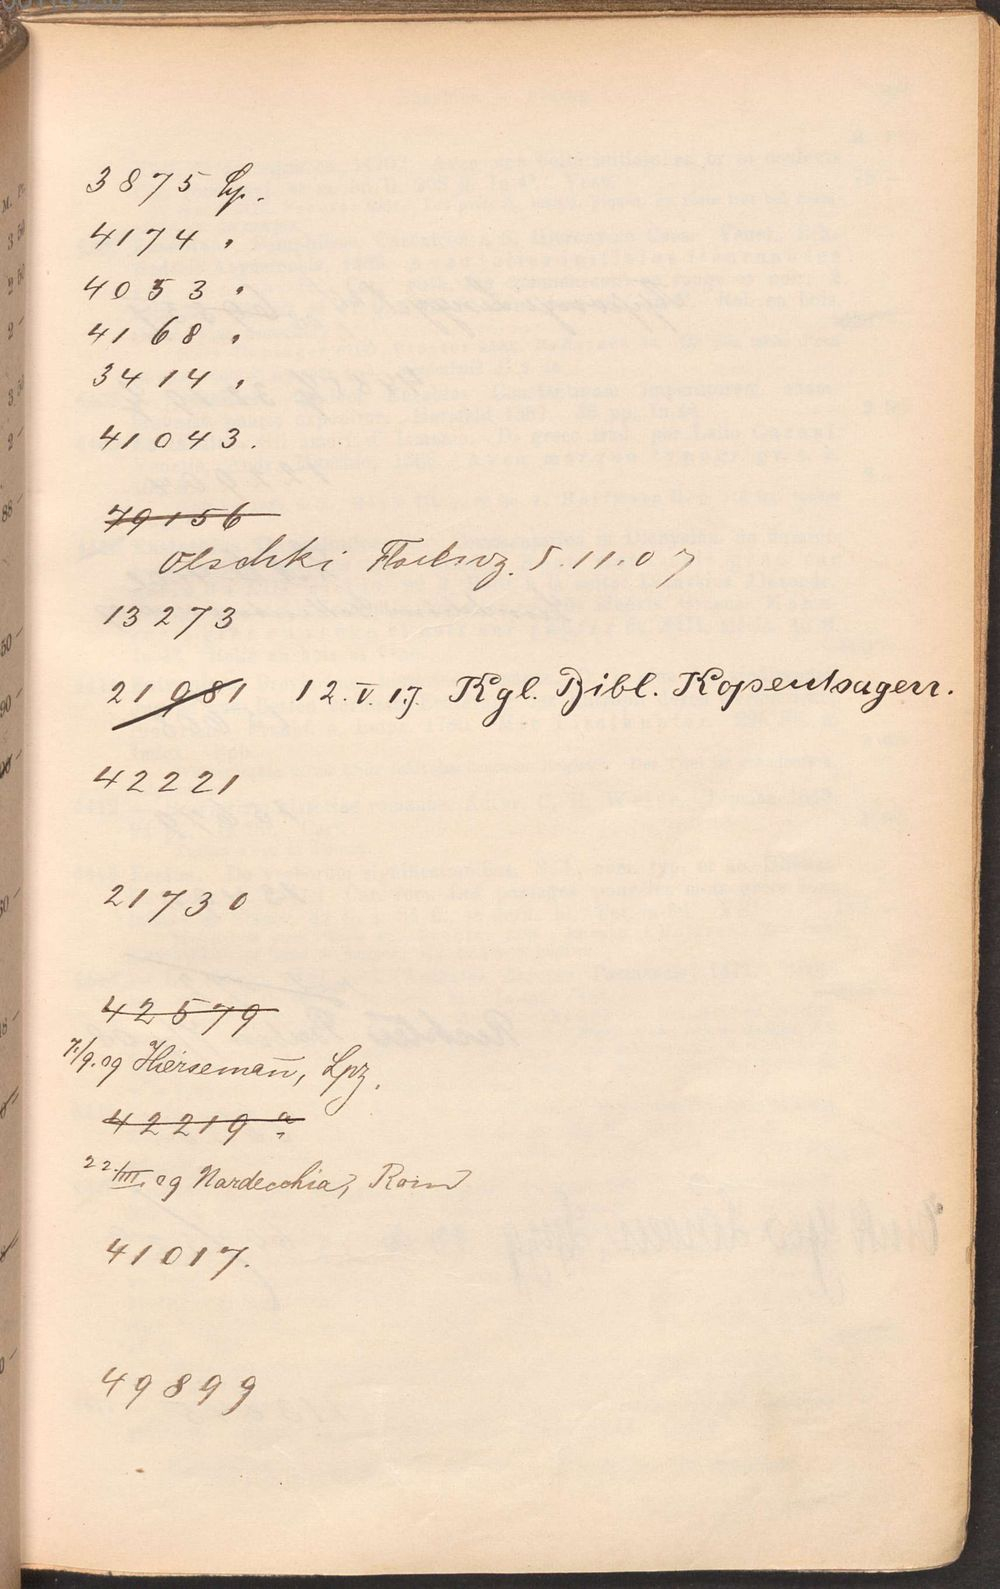 3875 Lp.
4174 "
4053 "
4168 "
3414 "
41043.
79156
Olschki Florenz. 5.11.07
13273
21981 12.V.13. Kgl. Bibl. Kopenhagen.
42221
21730
42579
7./9.09 Hiersemann, Lpz.
42219 a
22./III.09 Nardecchia, Rom
41017.
49899